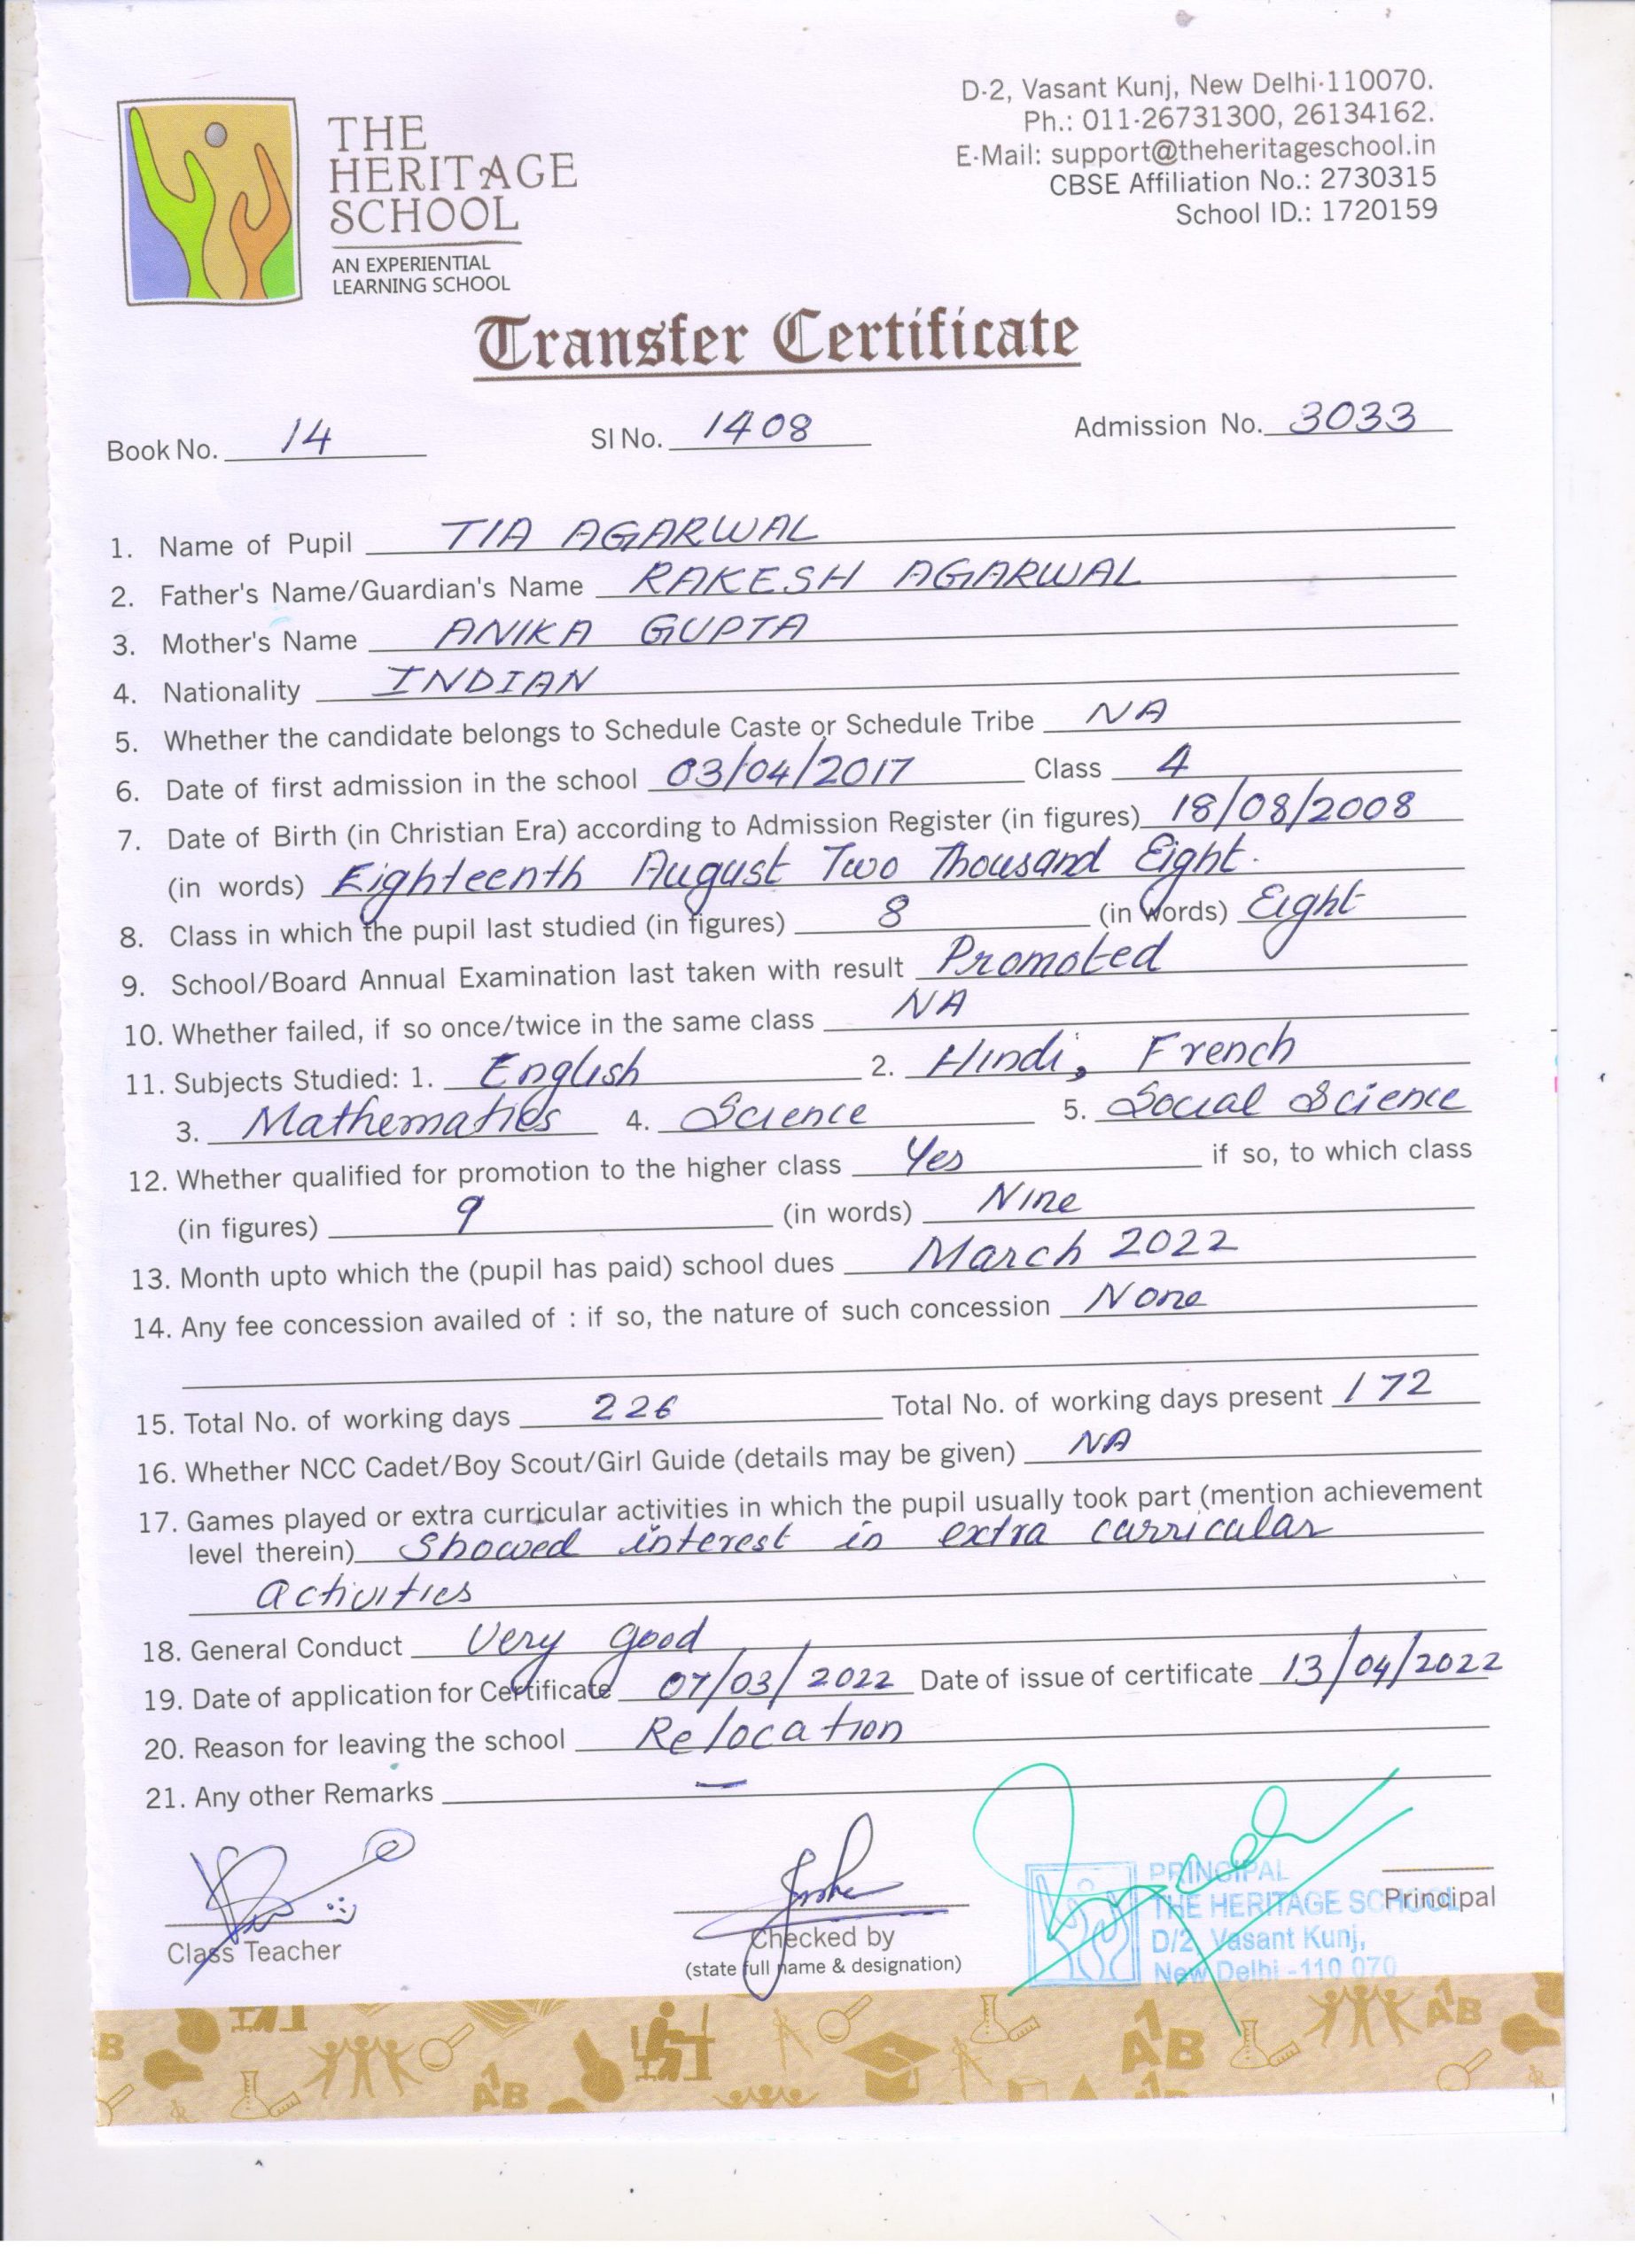 THE
HERITAGE
SCHOOL
AN EXPERIENTIAL
LEARNING SCHOOL
D-2, Vasant Kunj, New Delhi-110070.
Ph.: 011-26731300, 26134162.
E-Mail: support@theheritageschool.in
CBSE Affiliation No.: 2730315
School ID.: 1720159
Transfer Certificate
Book No. 14 Sl No. 1408 Admission No. 3033
1. Name of Pupil TIA AGARWAL
2. Father's Name/Guardian's Name RAKESH AGARWAL
3. Mother's Name ANIKA GUPTA
4. Nationality INDIAN
5. Whether the candidate belongs to Schedule Caste or Schedule Tribe NA
6. Date of first admission in the school 03/04/2017 Class 4
7. Date of Birth (in Christian Era) according to Admission Register (in figures) 18/08/2008
(in words) Eighteenth August Two Thousand Eight.
8. Class in which the pupil last studied (in figures) 8 (in words) Eight
9. School/Board Annual Examination last taken with result Promoted
10. Whether failed, if so once/twice in the same class NA
11. Subjects Studied: 1. English 2. Hindi, French
3. Mathematics 4. Science 5. Social Science
12. Whether qualified for promotion to the higher class Yes if so, to which class
(in figures) 9 (in words) Nine
13. Month upto which the (pupil has paid) school dues March 2022
14. Any fee concession availed of : if so, the nature of such concession None
15. Total No. of working days 226 Total No. of working days present 172
16. Whether NCC Cadet/Boy Scout/Girl Guide (details may be given) NA
17. Games played or extra curricular activities in which the pupil usually took part (mention achievement
level therein) Showed interest in extra curricular
activities
18. General Conduct Very good
19. Date of application for Certificate 07/03/2022 Date of issue of certificate 13/04/2022
20. Reason for leaving the school Relocation
21. Any other Remarks —
Class Teacher
Checked by
(state full name & designation)
Principal
PRINCIPAL
THE HERITAGE SCHOOL
D/2, Vasant Kunj,
New Delhi-110 070